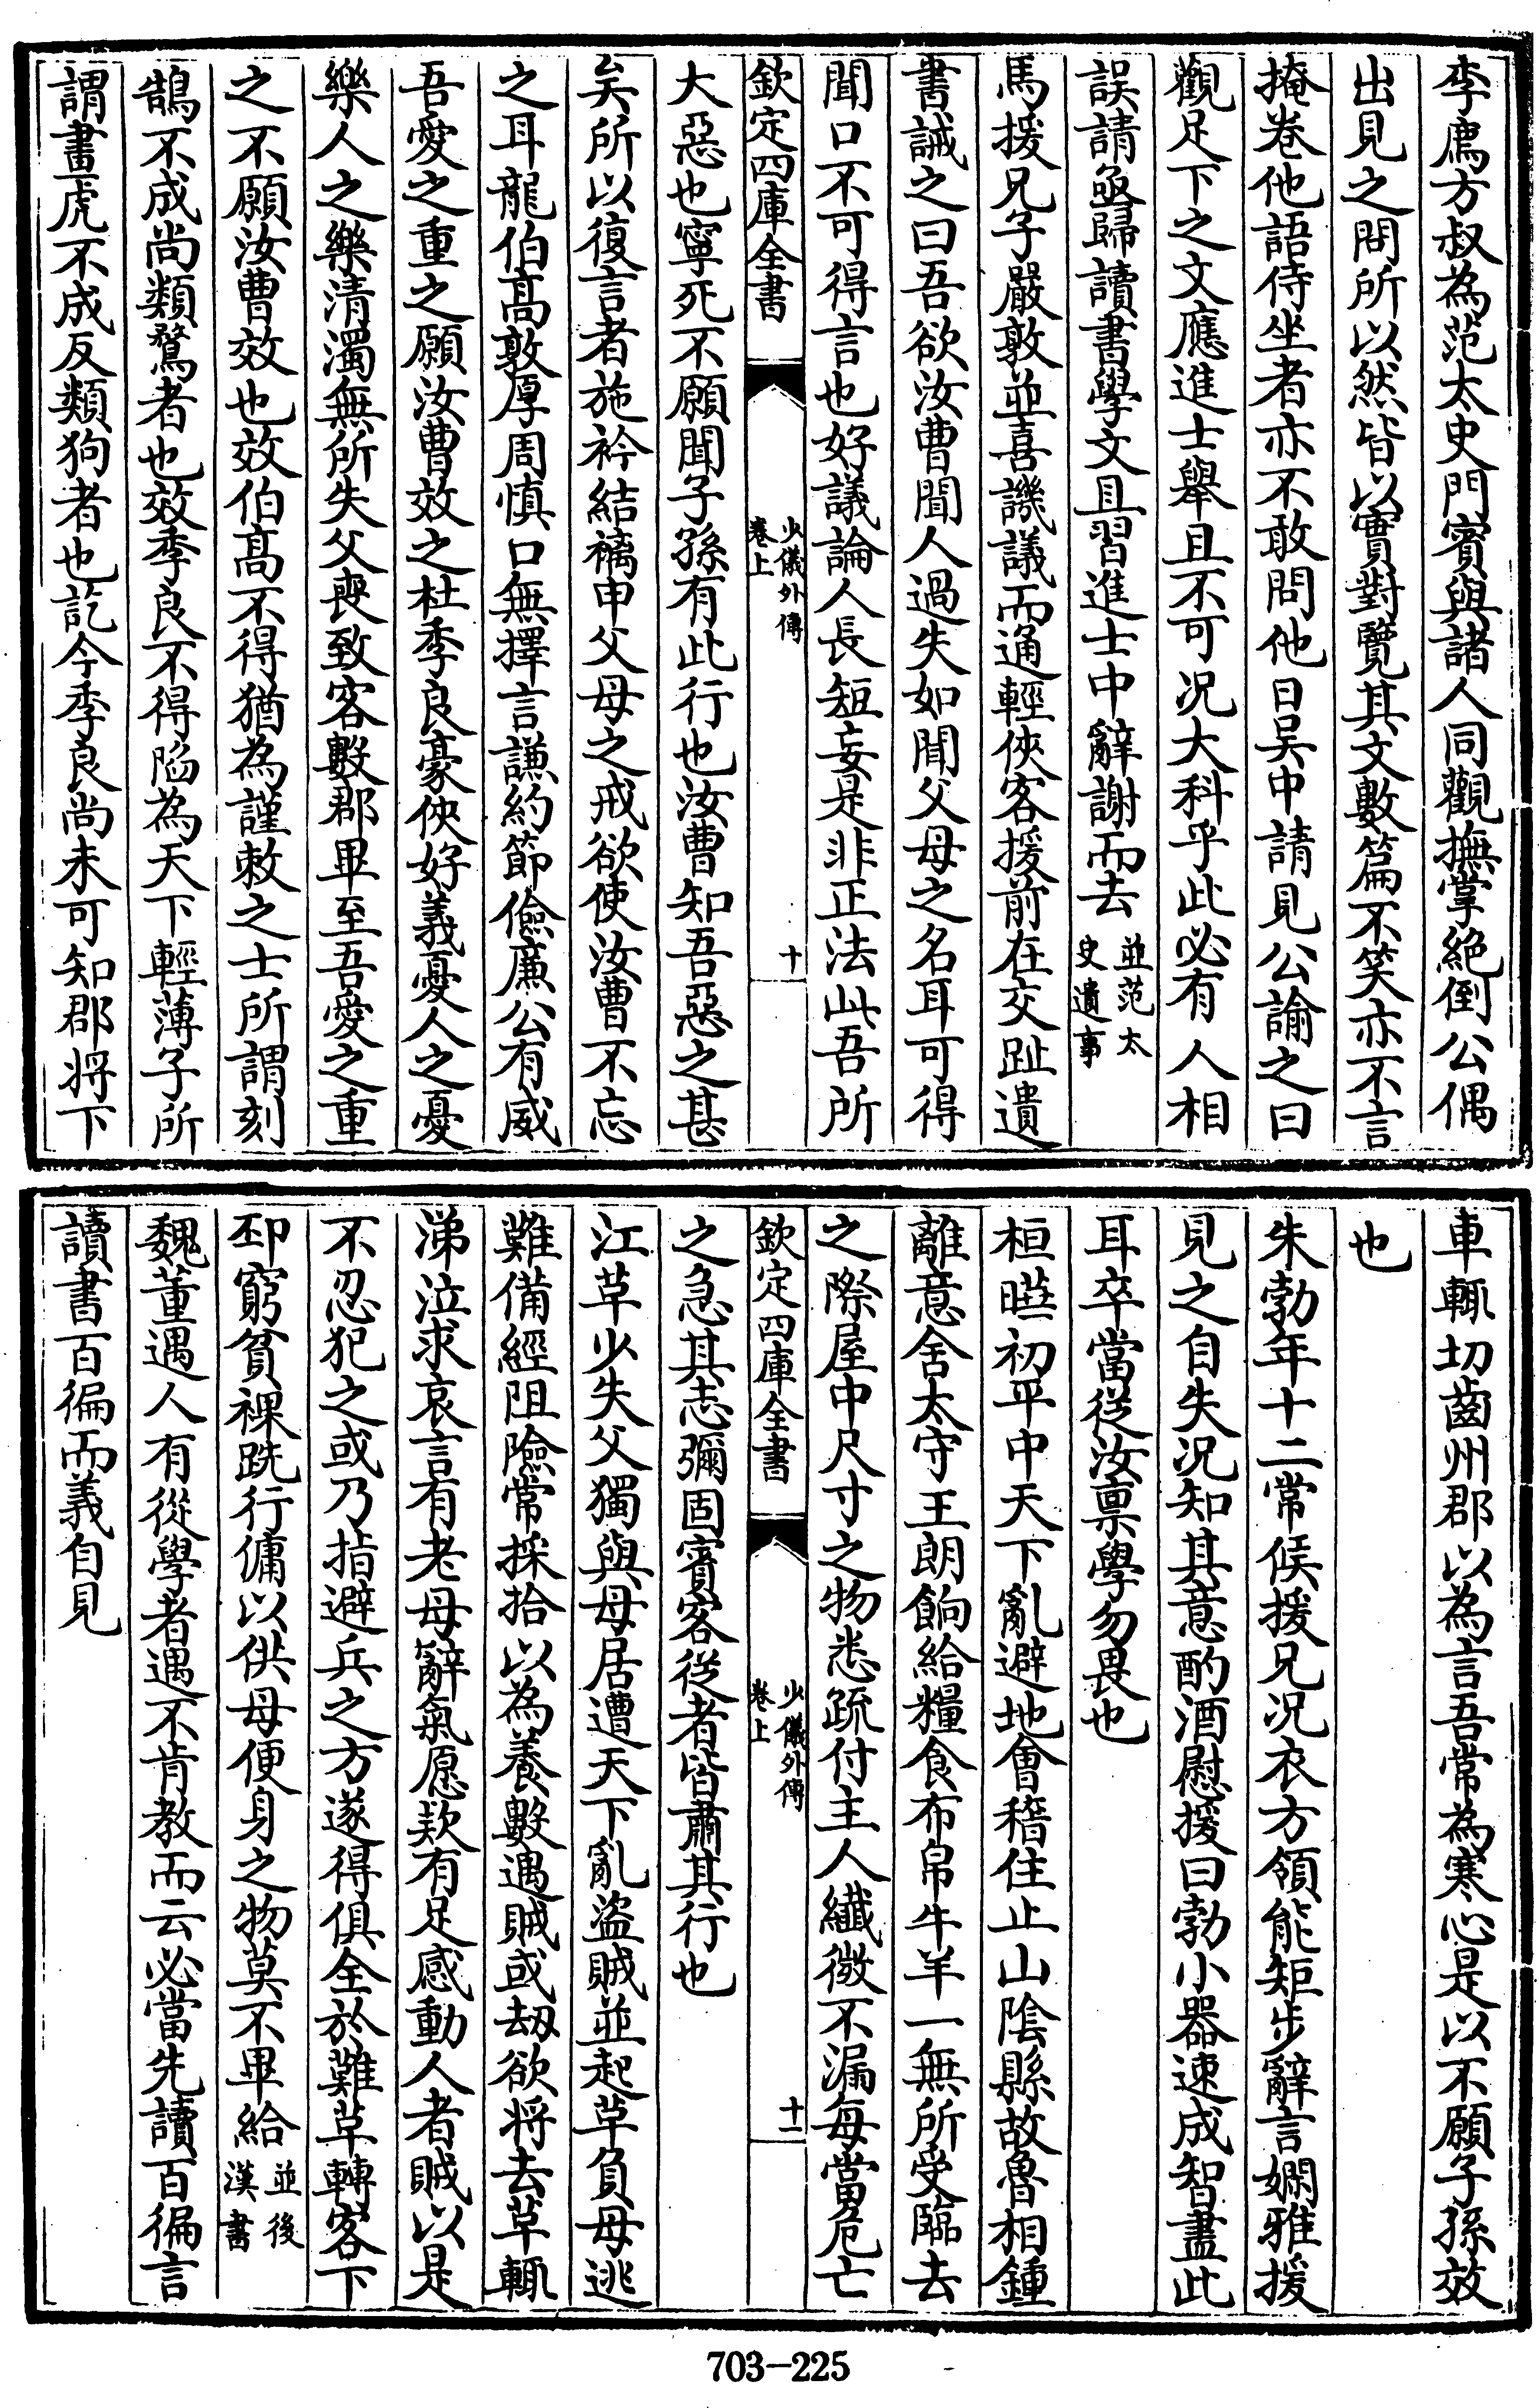 李廌方叔為范太史門賓與諸人同觀撫掌絕倒公偶
出見之問所以然皆以實對覽其文數篇不笑亦不言
掩卷他語侍坐者亦不敢問他日吴中請見公諭之曰
觀足下之文應進士舉且不可况大科乎此必有人相
誤請亟歸讀書學文且習進士中辭謝而去並范太史遺事
馬援兄子嚴敦並喜譏議而通輕俠客援前在交趾遺
書誡之曰吾欲汝曹聞人過失如聞父母之名耳可得
聞口不可得言也好議論人長短妄是非正法此吾所
欽定四庫全書
少儀外傳
卷上
十
大惡也寧死不願聞子孫有此行也汝曹知吾惡之甚
矣所以復言者施衿結褵申父母之戒欲使汝曹不忘
之耳龍伯髙敦厚周慎口無擇言謙約節儉廉公有威
吾愛之重之願汝曹效之杜季良豪俠好義憂人之憂
樂人之樂清濁無所失父喪致客數郡畢至吾愛之重
之不願汝曹效也效伯髙不得猶為謹敕之士所謂刻
鵠不成尚類鶩者也效季良不得陷為天下輕薄子所
謂畫虎不成反類狗者也訖今季良尚未可知郡將下
車輒切齒州郡以為言吾常為寒心是以不願子孫效
也
朱勃年十二常候援兄况衣方領能矩步辭言嫻雅援
見之自失况知其意酌酒慰援曰勃小器速成智盡此
耳卒當從汝禀學勿畏也
桓曄初平中天下亂避地會稽住止山陰縣故魯相鍾
離意舍太守王朗餉給糧食布帛牛羊一無所受臨去
之際屋中尺寸之物悉疏付主人纎微不漏每當危亡
欽定四庫全書
少儀外傳
卷上
十一
之急其志彌固賓客從者皆肅其行也
江革少失父獨與母居遭天下亂盜賊並起革負母逃
難備經阻險常採拾以為養數遇賊或刼欲將去革輒
涕泣求哀言有老母辭氣愿欵有足感動人者賊以是
不忍犯之或乃指避兵之方遂得俱全於難革轉客下
邳窮貧裸跣行傭以供母便身之物莫不畢給並後漢書
魏董遇人有從學者遇不肯教而云必當先讀百徧言
讀書百徧而義自見
703-225